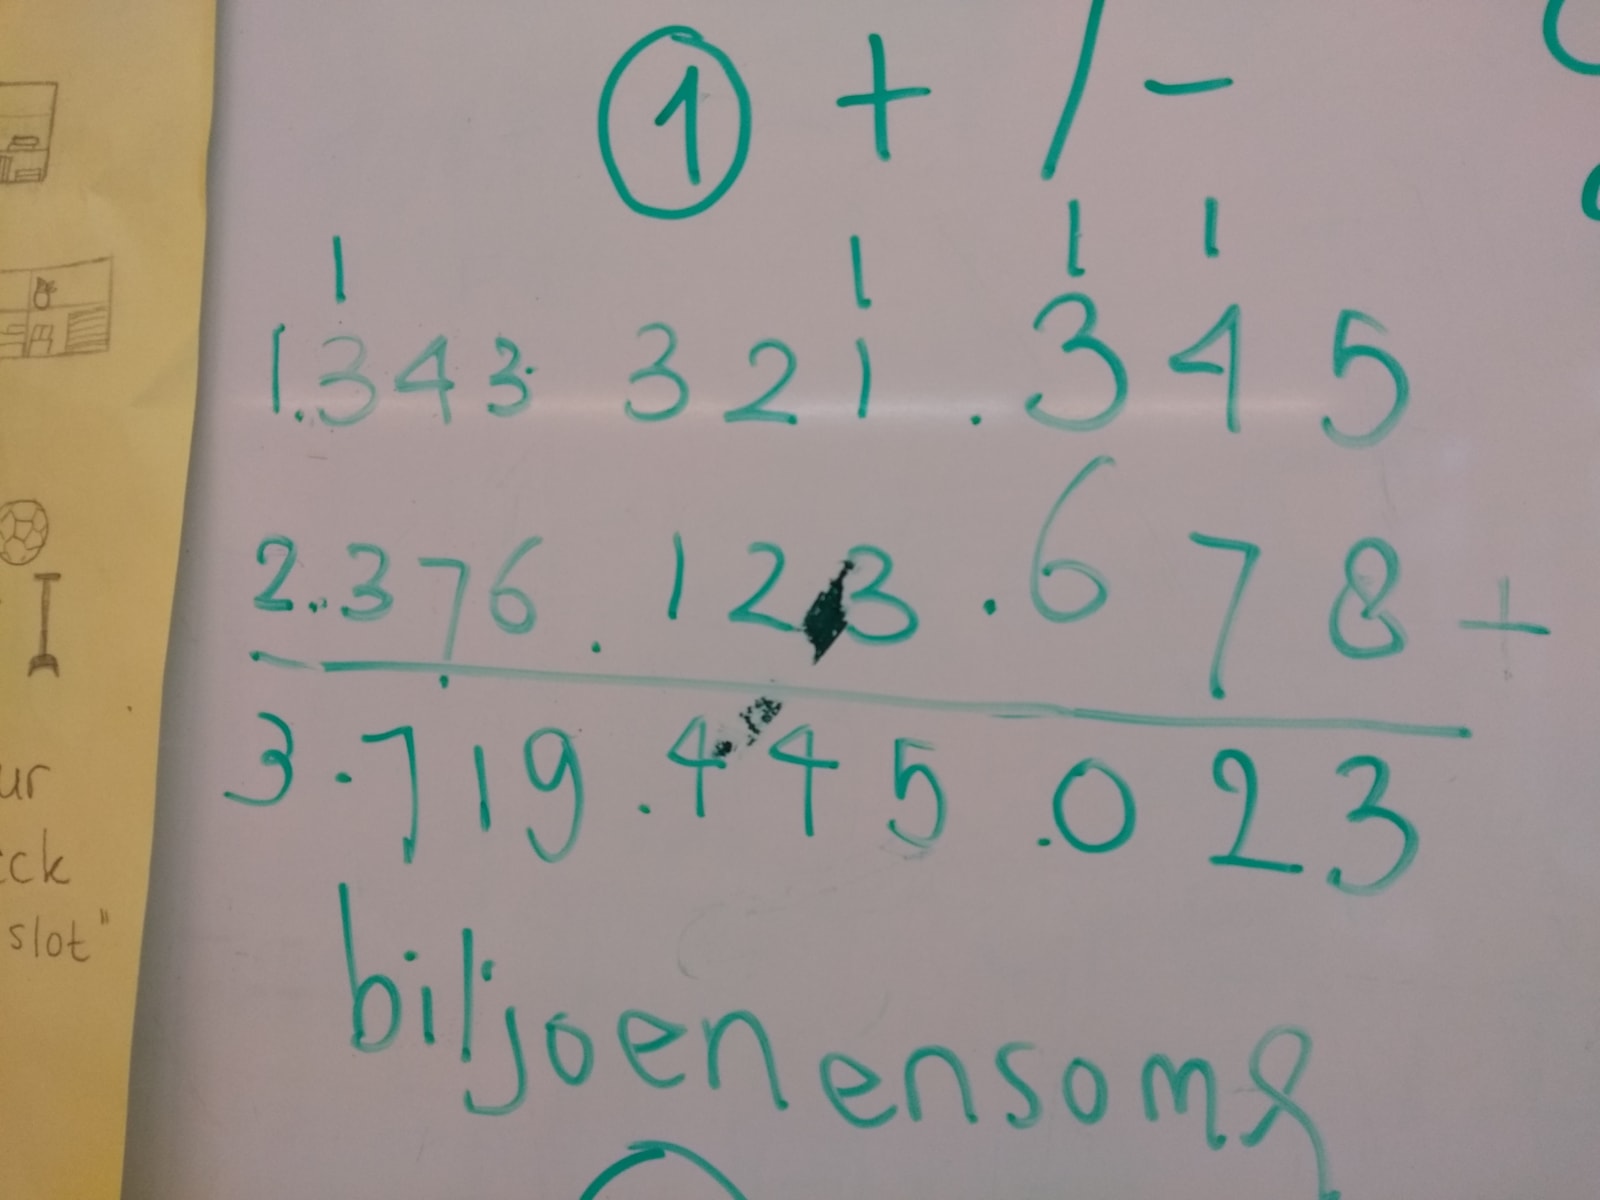 1 + / -
1 1 1 1
1.343 321.345
2.376.123.678 +
3.719.445.023
biljoenensom
ur
ck
slot"